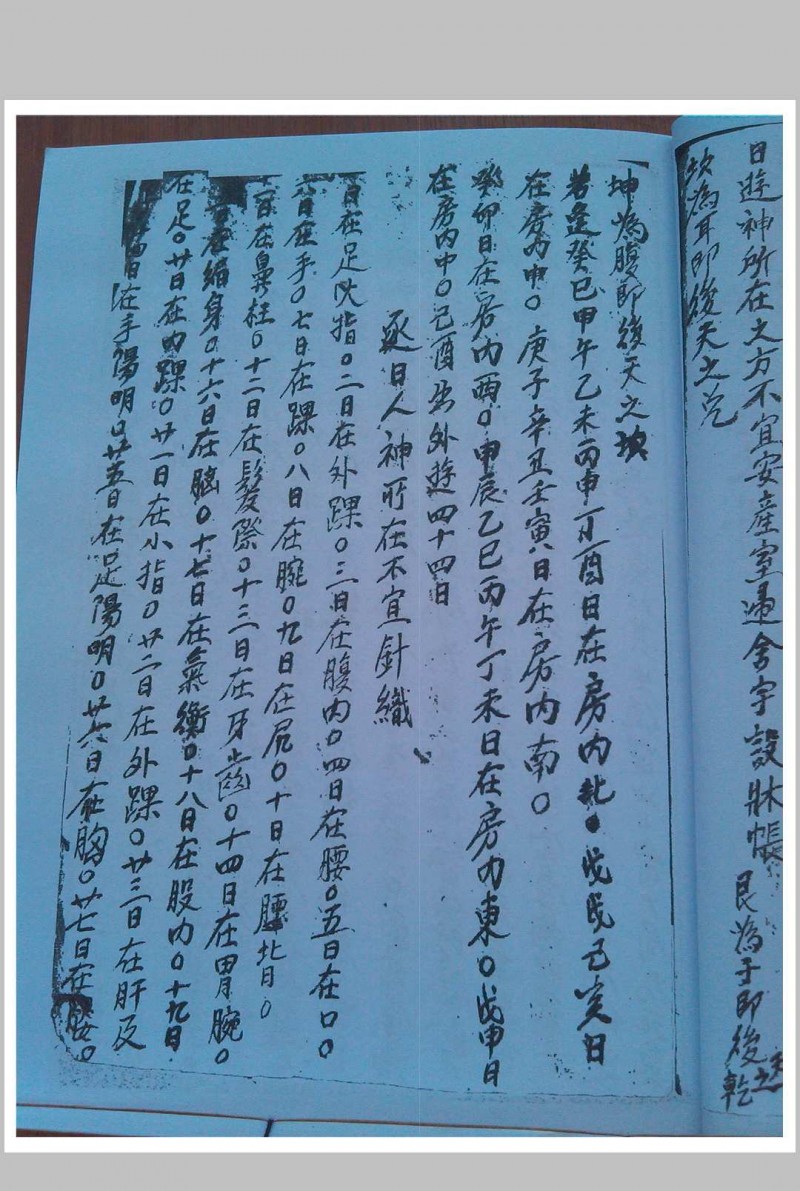 日遊神所在之方不宜安產室遷舍宇設牀帳 艮為手即後天之乾
坎為耳即後天之兌
坤為腹即後天之坎
若逢癸巳甲午乙未丙申丁酉日在房內北○戊戌己亥日
在房內中○庚子辛丑壬寅八日在房內南○
癸卯日在房內西○甲辰乙巳丙午丁未日在房內東○戊申日
在房內中○己酉出外遊四十四日
逐日人神所在不宜針織
日在足大指○二日在外踝○三日在腹內○四日在腰○五日在口○
六日在手○七日在踝○八日在腕○九日在尻○十日在腰北日○
日在鼻柱○十二日在髮際○十三日在牙齒○十四日在胃腕○
日在縮身○十六日在胸○十七日在氣衡○十八日在股內○十九日
在足○廿日在內踝○廿一日在小指○廿二日在外踝○廿三日在肝及
日在手陽明○廿五日在足陽明○廿六日在胸○廿七日在膝○